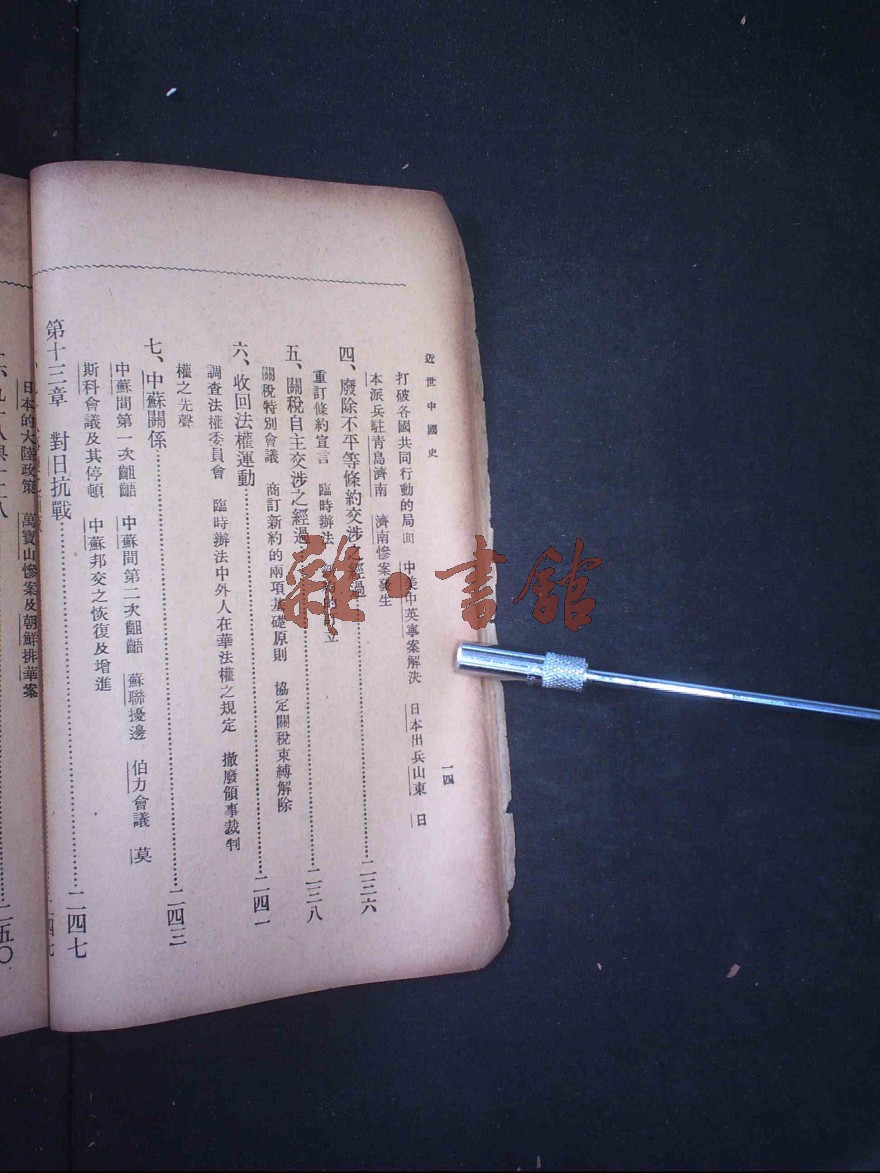 近世中國史
一四
打破各國共同行動的局面 中美中英寧案解決 日本出兵山東 日
本派兵駐青島濟南 濟南慘案發生
四、廢除不平等條約交涉之經過……二三六
重訂條約宣言 臨時辦法 立
五、關稅自主交涉之經過……二三八
關稅特別會議 商訂新約的兩項基礎原則 協定關稅束縛解除
六、收回法權運動……二四一
調查法權委員會 臨時辦法中外人在華法權之規定 撤廢領事裁判
權之先聲
七、中蘇關係……二四三
中蘇間第一次齟齬 中蘇間第二次齟齬 蘇聯擾邊 伯力會議 莫
斯科會議及其停頓 中蘇邦交之恢復及增進
第十三章 對日抗戰……二四七
日本的大陸政策 萬寶山慘案及朝鮮排華案
二五〇
雜·書館